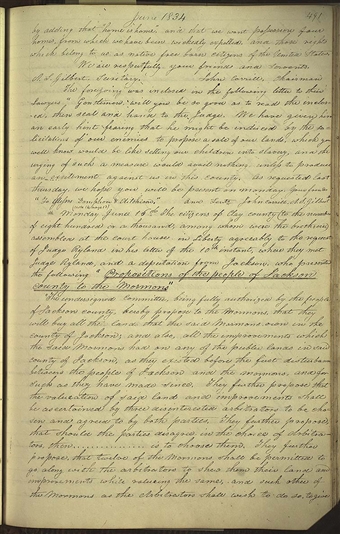 June 1834 481
by adding, that "home is home" and that we want possession of our
homes, from which we have been wickedly expelled, and those rights
which belong to us as native free born citizens of the United States
We are respectfully, your friends and servants
A. S. Gilbert, Secretary. John Corrill, Chairman
The foregoing was inclosed in the following letter to their
lawyers; "Gentlemen: Will you be so good as to read the enclos-
ed, then seal and hand to the Judge. We have given him
an early hint fearing that he might be induced by the so-
licitations of our enemies to propose a sale of our lands, which you
well know would be like selling our children into slavery, and the
urging of such a measure would avail nothing, unless to produce
an excitement against us in this county. As requested last
thursday we hope you will be present on monday. Your friends
"To Messrs Doniphon & Atchison," and Serts John Corrill, A. S. Gilbert"
Monday June 16th The citizens of Clay county, to the number
of eight hundred or a thousand, among whom were the brethren,
assembled at the Court house in Liberty agreeably to the request
of Judge Ryland in his letter of the 10th instant, where they met
Judge Ryland, and a deputation from Jackson, who presented
the following "Propositions of the people of Jackson
county to the Mormons"
"The undersigned Committee, being fully authorized by the people
of Jackson county, hereby propose to the Mormons, that they
will buy all the land that the said Mormons own in the
county of Jackson; and also, all the improvements which
the said Mormons had on any of the public lands in said
county of Jackson, as they existed before the first disturbance
between the people of Jackson and the mormons, and for
such as they have made since. They further propose that
the valuation of said land and improvements shall
be ascertained by three disinterested arbitrators to be cho-
sen and agreed to by both parties. They further propose,
that should the parties disagree in the choice of arbitra-
tors, then is to choose them. They further
propose, that twelve of the Mormons shall be permitted to
go along with the arbitrators to shew them their land and
improvements while valuing the same, and such other of
the Mormons as the arbitrators shall wish to do so, to give